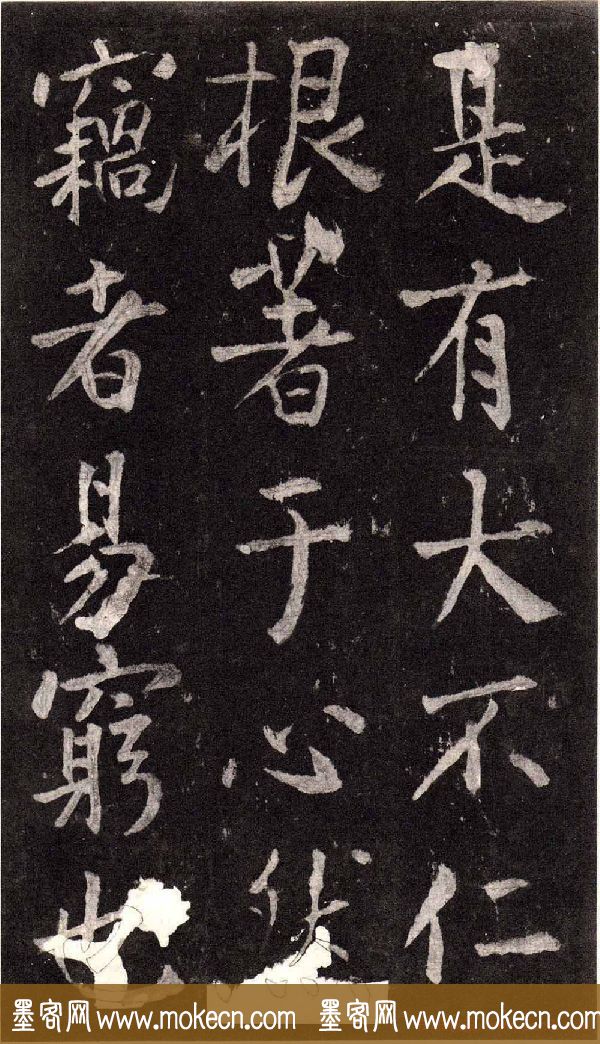 是有大不仁
根著于心
竊者易窮也
墨客网 www.mokecn.com 墨客网 www.mokecn.com